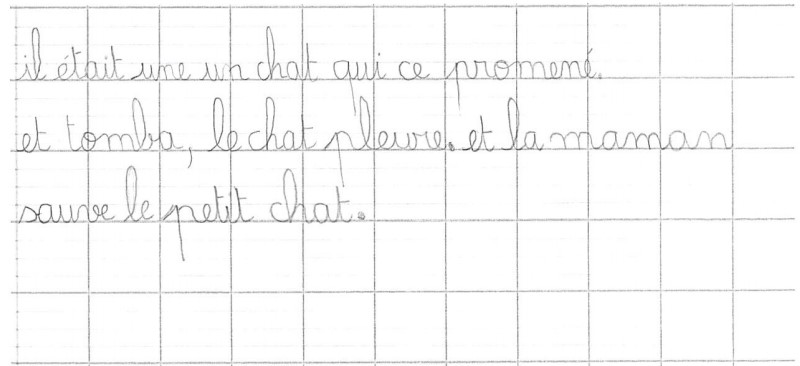 il était une un chat qui ce promené.
et tomba, le chat pleure. et la maman
sauve le petit chat.